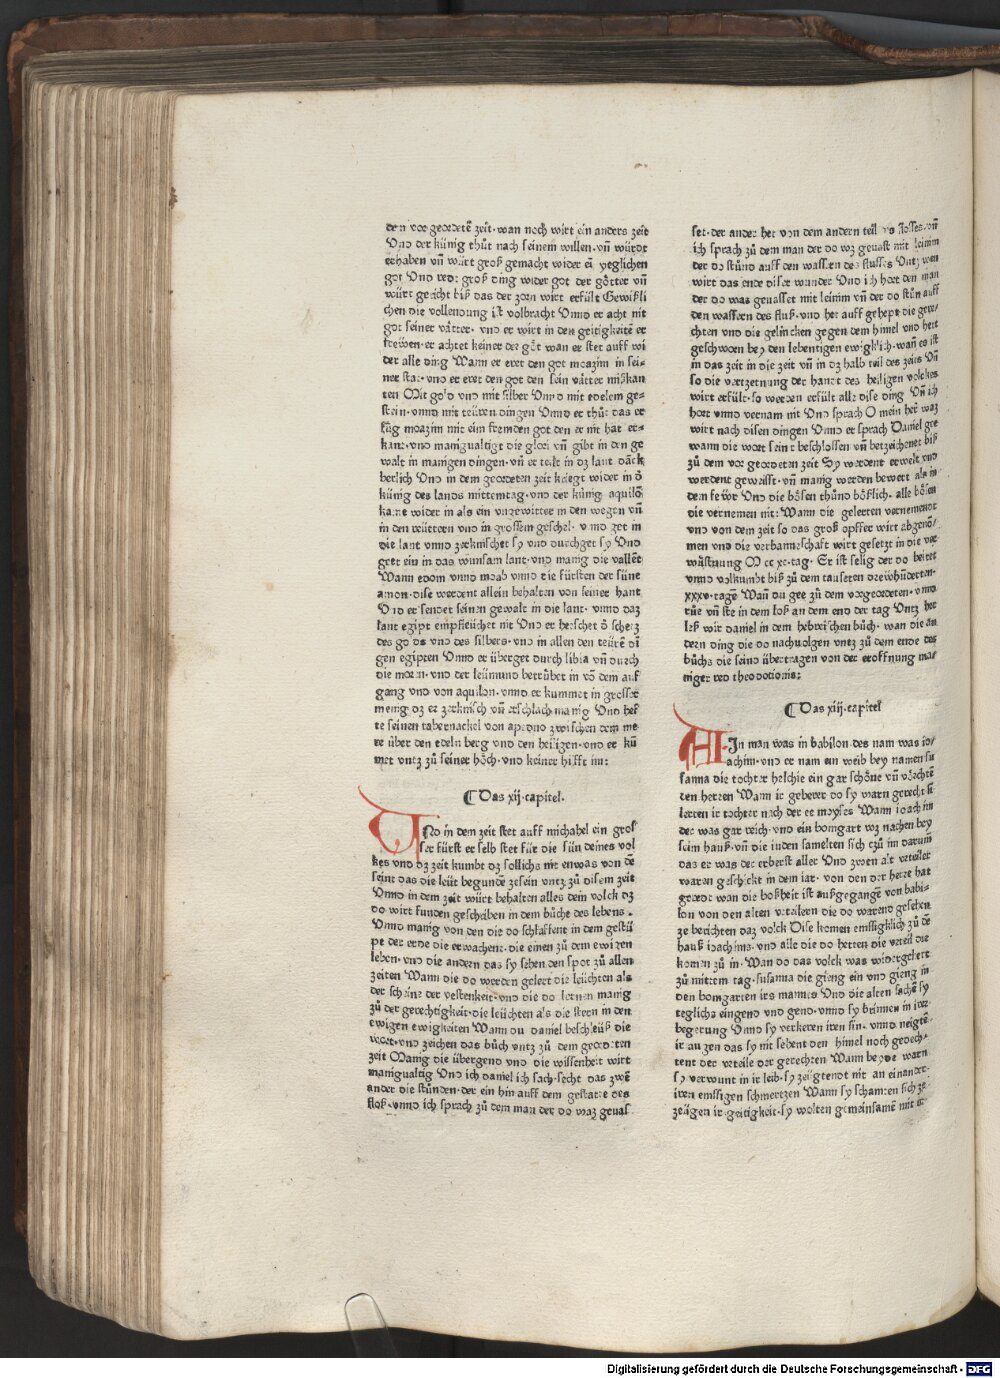 den vor geordetē zeit·wan noch wirt ein anders zeit
Vnd der künig thůt nach seinem willen·vñ würdt
erhaben vñ würt groß gemacht wider eī yeglichen
got Vnd redt groß ding wider got der götter vñ
würt gericht biß das der zorn wirt erfült Gewißli
chen die vollendung ist volbracht Vnnd er acht nit
got seiner vätter· vnd er wirt in den geitigkeitē er
frewen·er achtet keiner der göt wan er stet auff wi
der alle ding Wann er eret den got moazim in sei-
ner stat·vnd er eret den got den sein vätter mißkan
ten Mit gold vnd mit silber Vnnd mit edelem ge-
stein·vnnd mit teüren dingen Vnnd er thůt das er
fůg moazim mit eim fremden got den er nit hat er-
kant·vnd manigualtigt die glori vñ gibt in den ge
walt in manigen dingen·vñ er teilt in dz lant dāck
berlich Vnd in dem geordeten zeit krieget wider in d̄
künig des lands mittemtag·vnd der künig aquilōs
kume wider in als ein vngewitter in den wegen vñ
in den reütteren vnd in grossem geschel· vnnd get in
die lant vnnd zerknischet sy vnd durchget sy Vnd
geet ein in das wunsam lant·vnd manig die vallēt
Wann edom vnnd moab vnnd die fürsten der süne
amon·dise werdent allein behalten von seiner hant
Vnd er sendet seinen gewalt in die lant· vnnd daz
lant egipt empfleüchet nit Vnd er herschet d̄ schetz
des golds vnd des silbers·vnd in allen den teürē dī
gen egipten Vnnd er überget durch libia vñ durch
die moren·vnd der leümund betrübet in vō dem auf
gang vnd von aquilon·vnnd er kummet in grosser
menig dz er zerknisch vñ erschlach manig Vnd hef
te seinen tabernackel von apedno zwischen dem me
re über den edeln berg vnd den heiligen·vnd er kū
met vntz zů seiner höch·vnd keiner hilfft im:
¶Das xij·capitel·
VNd in dem zeit stet auff michahel ein gros
ser fürst er selb stet für die sün deines vol
kes vnd dz zeit kumbt dz sollichs nit etwas von dē
seint das die leüt begundē zesein vntz zů disem zeit
Vnnd in dem zeit würt behalten alles dein volck dz
do wirt funden geschriben in dem bůche des lebens·
Vnnd manig von den die do schlaffent in dem gestü
pe der erde die erwachent·die einen zů dem ewigen
leben·vnd die andern das sy sehen den spot zů allen
zeiten Wann die do werden gelert die leüchten als
der scheine der vestenkeit·vnd die do lernen manig
zů der gerechtigkeit·die leüchten als die stern in den
ewigen ewigkeiten Wann du daniel beschleüß die
wort·vnd zeichen das bůch vntz zů dem geordeten
zeit Manig die übergend vnd die wissenheit wirt
manigualtig Vnd ich daniel ich sach·secht das zwē
ander die stůnden·der ein hin auff dem gestatte des
floß·vnnd ich sprach zů dem man der do waz geuas
set·der ander her von dem andern teil des flosses·vñ
ich sprach zů dem man der do wz geuast mit leinim
der do stůnd auff den wassern des flusses Vntz wen
wirt das ende diser wunder Vnd ich hort den man
der do was geuasset mit leinim vñ der do stůn auff
den wassern des fluß·vnd het auff gehept die gere/
chten vnd die gelincken gegen dem himel vnd hett
geschworn bey den lebentigen ewigklich·wañ es ist
in das zeit in die zeit vñ in dz halb teil des zeits Vñ
so die verzetzung der handt des heiligen volckes
wirt erfült·so werden erfült alle dise ding Vñ ich
hort vnnd vernam nit Vnd sprach O mein herr waz
wirt nach disen dingen Vnnd er sprach Daniel gee
wann die wort seint beschlossen vñ betzeichenet biß
zů dem vor geordeten zeit Sy werdent erwelt vnd
werdent geweisst·vñ manig werden bewert als in
dem feür Vnd die bösen thůnd böslich·alle bösen
die vernemen nit: Wann die gelerten vernement
vnd von dem zeit so das groß opffer wirt abgenō/
men vnd die verbannschaft wirt gesetzt in die ver
wüstnung M cc xc·tag· Er ist selig der do beitet
vnnd volkumbt biß zů dem tauseten drewhůnderten·
xxxv·tagē Wañ du gee zů dem vorgeordeten·vnnd
růe vñ ste in dem loß an dem end der tag Vntz her
leß wir daniel in dem hebreischen bůch· wan die an
dern ding die do nachuolgen vntz zů dem ende des
bůchs die seind übertragen von der eroffnung ma/
niger red theodotionis:
¶Das xiij·capitel
EIn man was in babilon·des nam was io/
achim·vnd er nam ein weib bey namen su
sanna die tochter helchie ein gar schöne vñ vörchtē
ten herren Wann ir geberer do sy warn gerecht si
lerten ir tochter nach der ee moyses Wann ioachim
der was gar reich·vnd ein bomgart wz nachen bey
seim hauß·vñ die iuden samelten sich czů im darum
das er was der erberst aller Vnd zwen alt vrteiler
waren geschickt in dem iar· von den der herre hat
geredt wan die boßheit ist außgegangē von babi-
lon von den alten vrteilern die do warend gesehen
ze berichten daz volck Dise komen emssigklich zů dē
hauß ioachims·vnd alle die do hetten die vrteil die
komen zů in· Wan do das volck was widergekert
zů mittem tag·susanna die gieng ein vnd gieng in
den bomgarten irs mannes Vnd die alten sachē sy
teglichs eingend vnd gend·vnnd sy brinnen in irer
begerung Vnnd sy verkerten iren sin· vnnd neigtē
ir augen das sy nit sehent den himel noch gedech-
tent der vrteile der gerechten Wann beyde warn
sy verwunt in ir leib·sy zeigtendt nit an einander
iren emssigen schmertzen Wann sy schamten sich ze
zeügen ir geitigkeit·sy wolten gemeinsamē mit ir